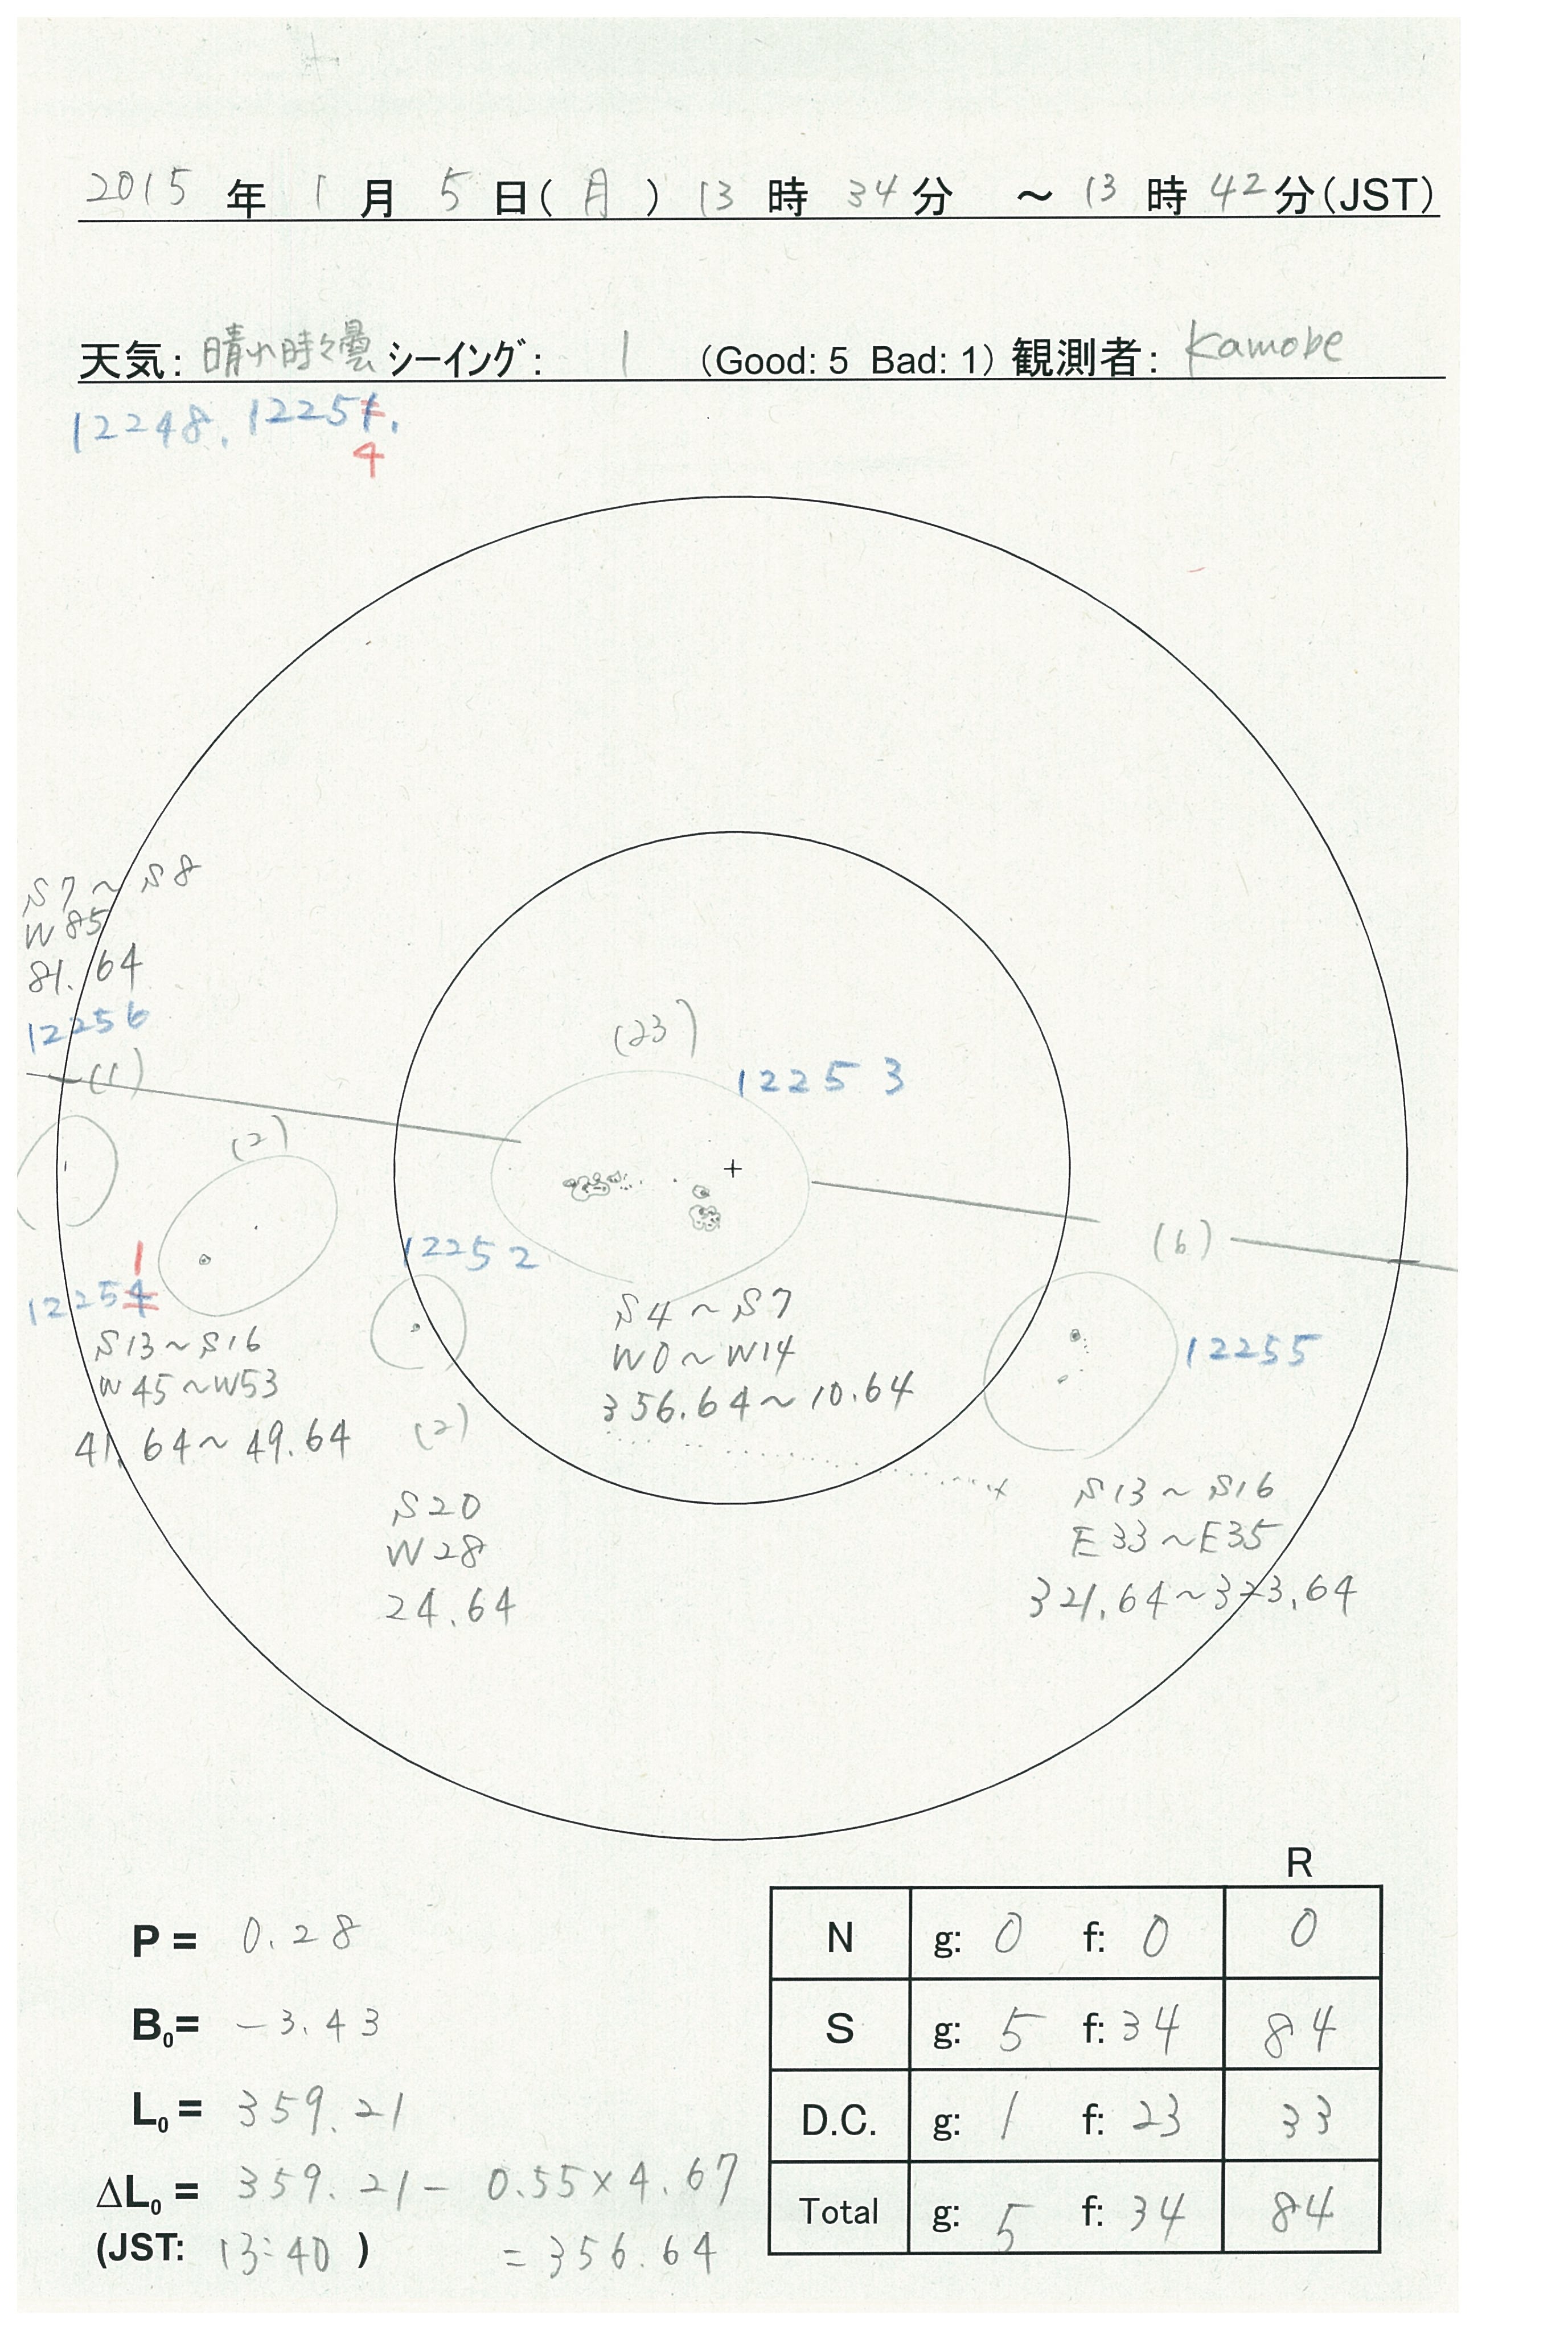 2015 年 1 月 5 日(月) 13 時 34 分 ～ 13 時 42 分(JST)
天気: 晴れ時々曇 シーイング: 1 (Good: 5 Bad: 1) 観測者: Kamobe
12248. 12251.
4
S7～S8
W85
81.64
12256
(1)
(23)
12253
(2)
12252
(6)
1
12254
S13～S16
W45～W53
41.64～49.64
(2)
S20
W28
24.64
S4～S7
W0～W14
356.64～10.64
12255
S13～S16
E33～E35
321.64～323.64
P = 0.28
B₀= -3.43
L₀= 359.21
ΔL₀= 359.21 - 0.55×4.67
(JST: 13:40) = 356.64
R
N g: 0 f: 0 0
S g: 5 f: 34 84
D.C. g: 1 f: 23 33
Total g: 5 f: 34 84